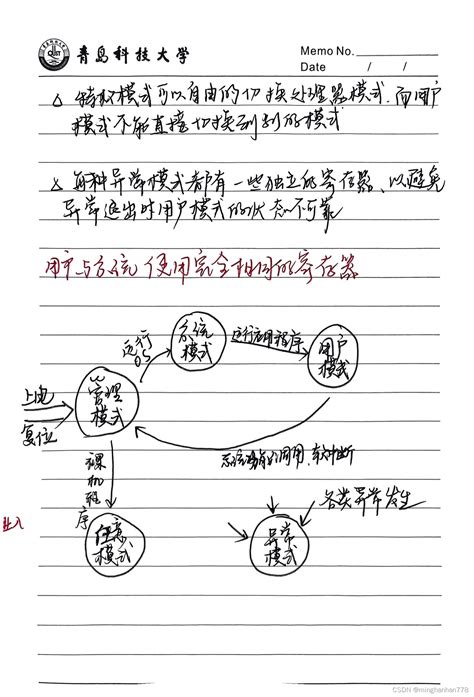 青岛科技大学
Memo No.
Date / /
△ 特权模式可以自由的切换处理器模式，而用户
模式不能直接切换到别的模式
△ 每种异常模式都有一些独立的寄存器，以避免
异常退出时用户模式的状态不可靠
用户与系统使用完全相同的寄存器
运行OS
系统模式
运行应用程序
用户模式
上电
复位
管理模式
系统调用，软中断
裸机程序
任意模式
异常模式
各类异常发生
CSDN @minghanhan778